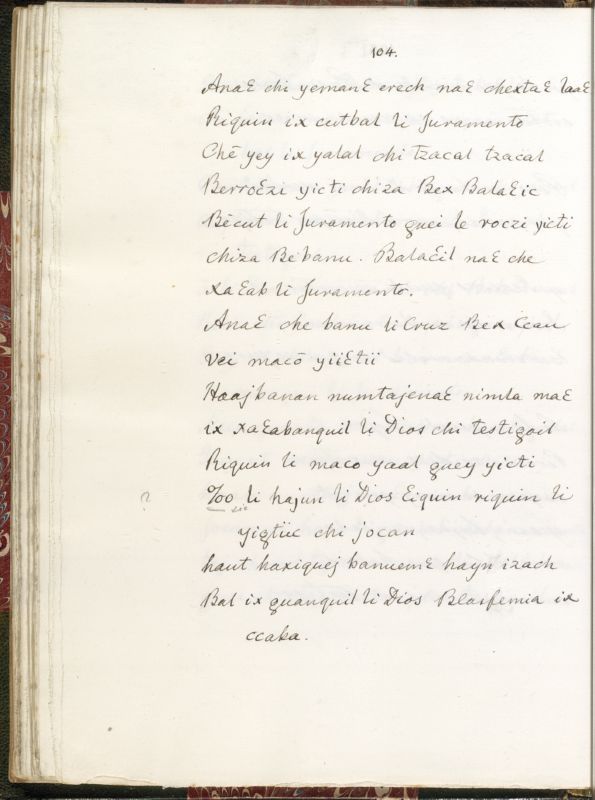 104.
Anaꜫ chi yemanꜫ erech naꜫ chextaꜫ laaꜫ
Riquin ix cutbal li Juramento
Chē yey ix yalal chi tzacal tzacal
Berroꜫzi yicti chiza Bex Balaꜫic
Bēcut li Juramento quei le roczi yicti
chiza Be banu. Balaꜫil naꜫ che
xaꜫab li Juramento.
Anaꜫ che banu li Cruz Bex Ceau
vei macō yiiꜫtii
Haajbanan numtajenaꜫ nimla maꜫ
ix xaꜫabanquil li Dios chi testigoil
Riquin li maco yaal quey yicti
? li hajun li Dios Eiquin riquin li
yiqtiic chi jocan
haut haxiquej banuemꜫ hayn izach
Bal ix quanquil li Dios Blasfemia ix
ccaba.